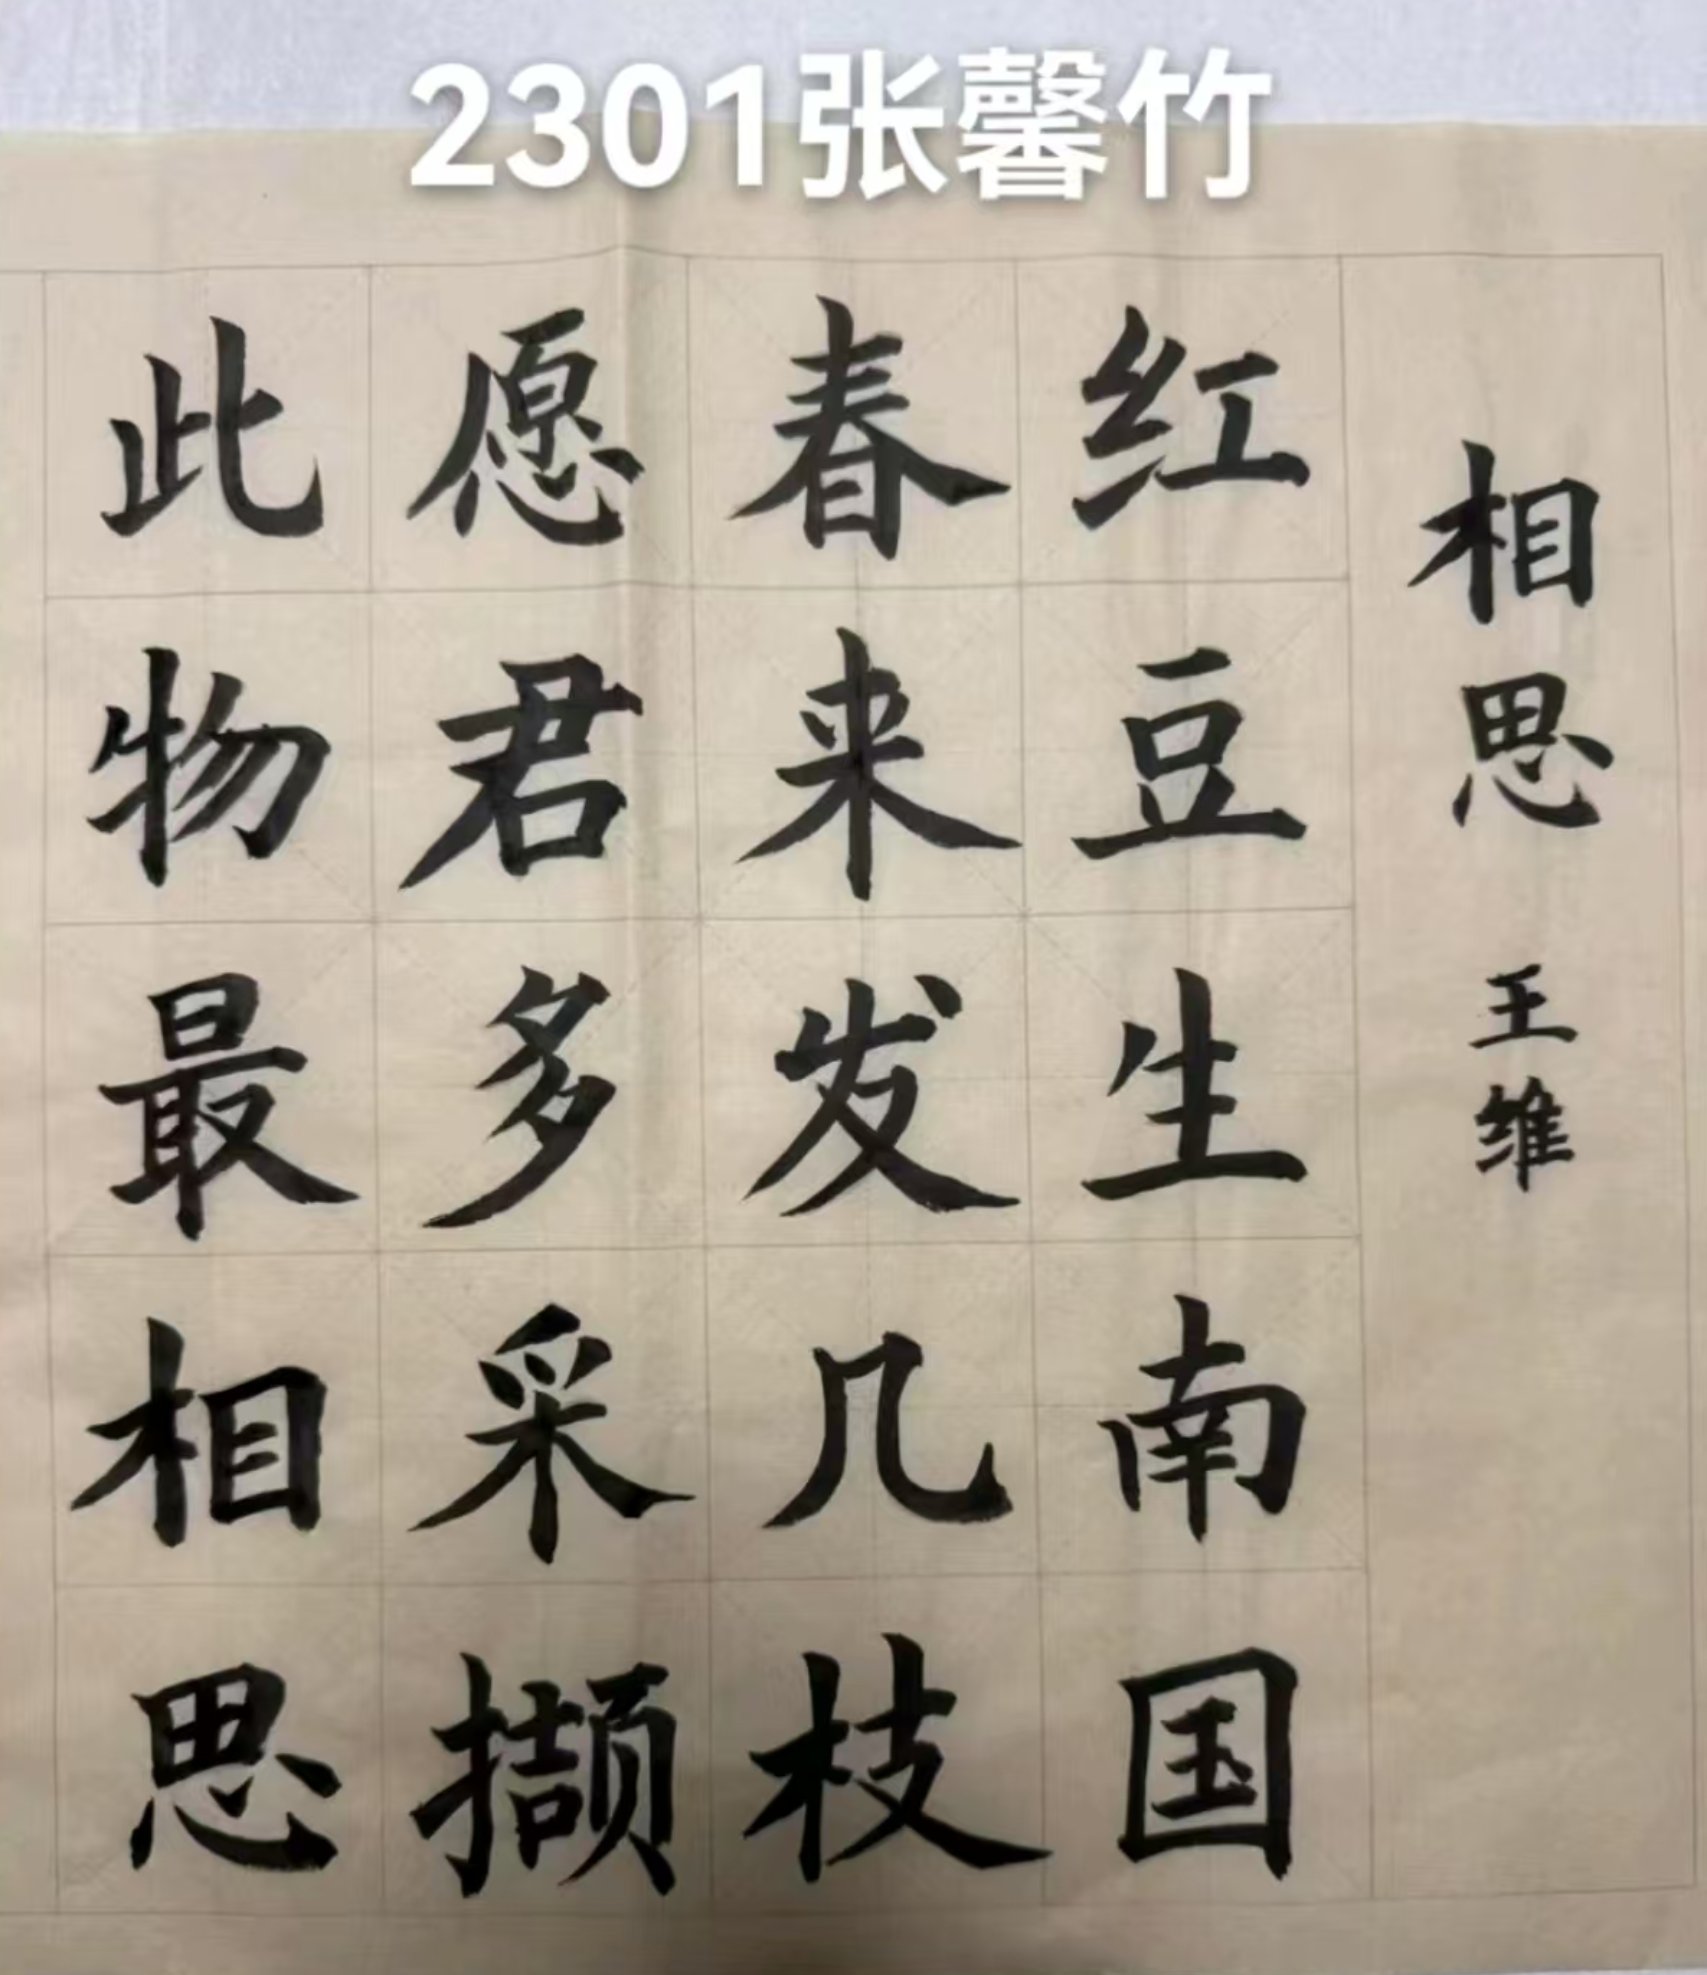 2301张馨竹
相思 王维
红豆生南国
春来发几枝
愿君多采撷
此物最相思